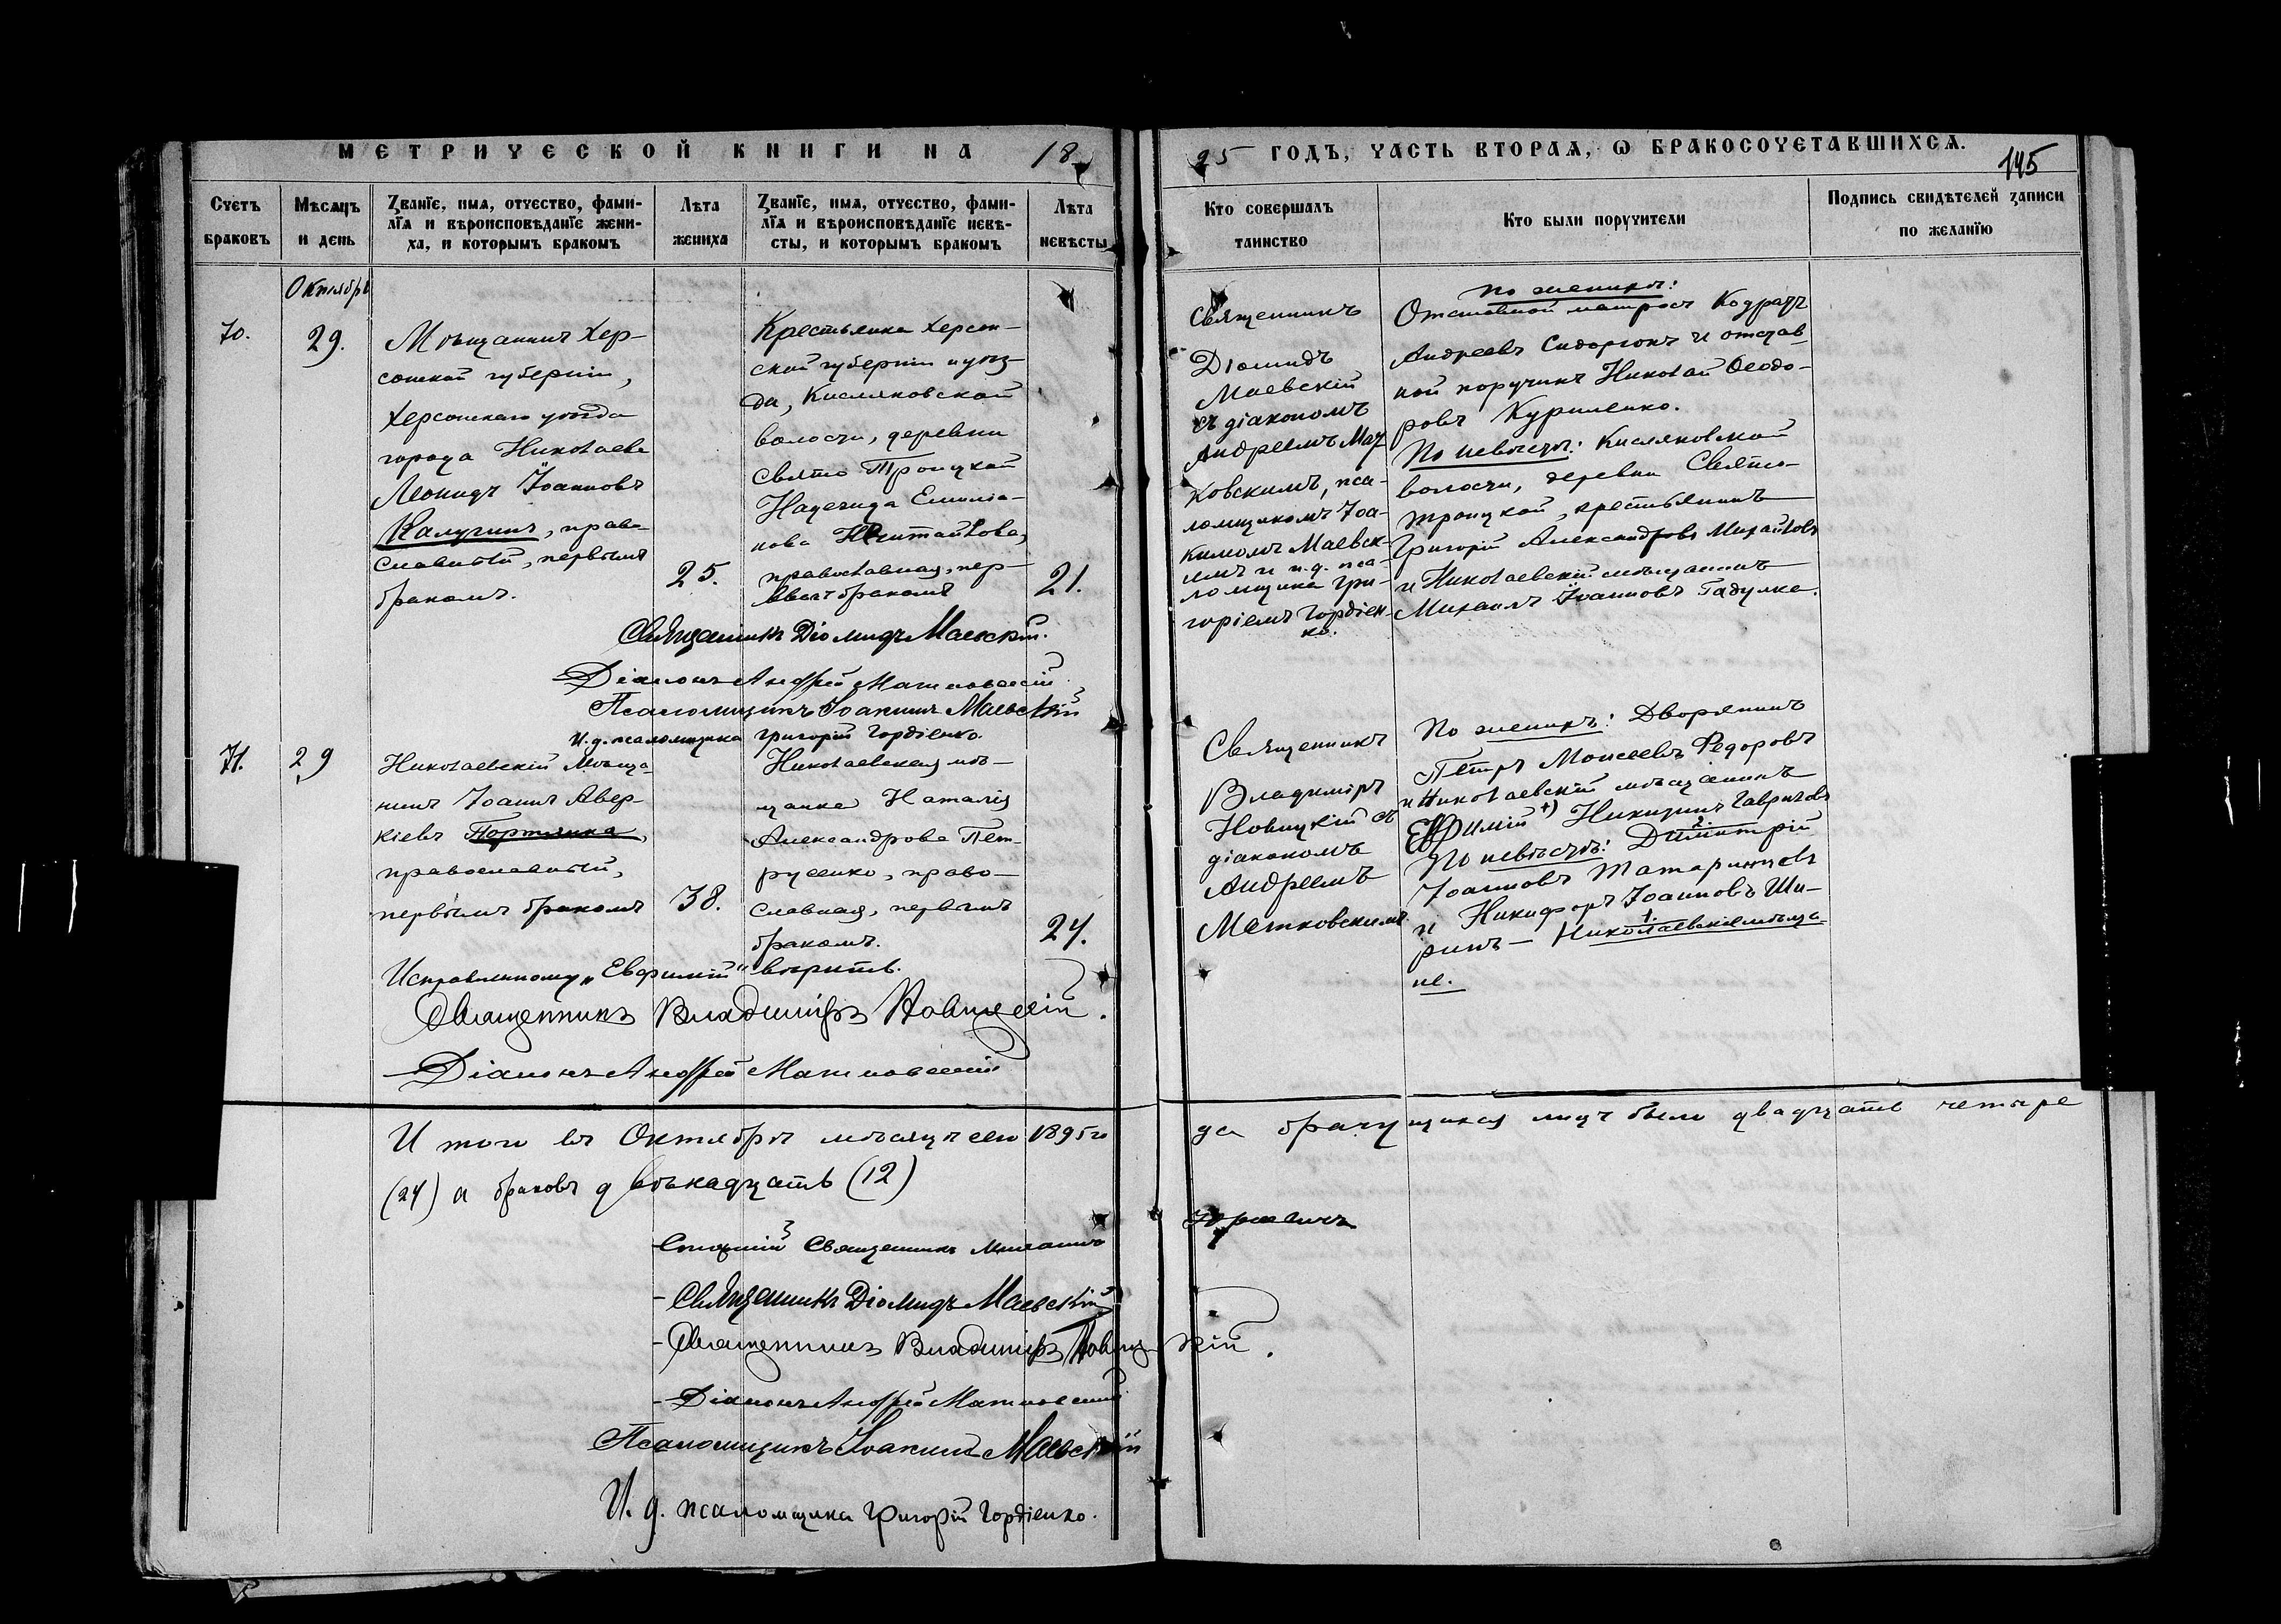 МЕТРИЧЕСКОЙ КНИГИ НА 18
95 ГОДЪ, ЧАСТЬ ВТОРАЯ, Ѡ БРАКОСОЧЕТАВШИХСЯ.
145
Счетъ браковъ
Мѣсяцъ и день
Званїе, имя, отчество, фами-
лїя и вѣроисповѣданїе жени-
ха, и которымъ бракомъ
Лѣта жениха
Званїе, имя, отчество, фами-
лїя и вѣроисповѣданїе невѣ-
сты, и которымъ бракомъ
Лѣта невѣсты
Кто совершалъ
таинство
Кто были поручители
Подпись свидѣтелей записи
по желанїю
Октябрь
70.
29.
Мѣщанинъ Хер-
сонской губерніи,
Херсонскаго уѣзда
города Николаева
Леонидъ Іоанновъ
Калугинъ, право-
славный, первымъ
бракомъ.
25.
Крестьянка Херсон-
ской губерніи и уѣз-
да, Кисляковской
волости, деревни
Свято Троицкой
Надежда Емилiа-
нова
православная, пер-
вымъ бракомъ
21.
Священникъ
Діомидъ
Маевскій
съ діакономъ
Андреемъ Мат-
ковскимъ, пса-
ломщикомъ Іоа-
кимомъ Маевск-
имъ и и.д. пса-
ломщика Гри-
горіемъ Гордіен-
ко.
По женихѣ:
Отставной матросъ Кодратъ
Андреевъ Сидорюкъ и отстав
ной поручикъ Николай Ѳеодо-
ровъ Куриленко.
По невѣстѣ: Кисляковской
волости, деревни Свято-
троицкой, крестьянинъ
Григорій Александровъ Михайловъ
и Николаевскій мѣщанинъ
Михаилъ Іоанновъ Гадулка.
Священникъ Діомидъ Маевскій.
Діаконъ Андрей Матковскій
Псаломщикъ Іоакимъ Маевскій
И. д. псаломщика Григорій Гордіенко.
71.
29
Николаевскій Мѣща-
нинъ Іоаннъ Авер-
кіевъ Портянка,
православный,
первымъ бракомъ
38.
Николаевская мѣ-
щанка Наталія
Александрова Пет-
русенко, право-
славная, первымъ
бракомъ.
24.
Священникъ
Владиміръ
Новицкій съ
діакономъ
Андреемъ
Матковскимъ.
По женихѣ: Дворянинъ
Петръ Моисеевъ Федоровъ
и Николаевскій мѣщанинъ
Евфимій +) Никитинъ Гавриловъ
По невѣстѣ: Димитрій
Іоанновъ Татариновъ
и Никифоръ Іоанновъ Ши-
ринъ — Николаевскіе мѣща-
не.
Исправленному „Евфимій" вѣрить.
Священникъ Владиміръ Новицкій.
Діаконъ Андрей Матковскій
Итого въ Октябрѣ мѣсяцѣ сего 1895 го
да брачущихся лицъ было двадцать четыре
(24) а браковъ двѣнадцать (12)
Священникъ
Священникъ Діомидъ Маевскій
Священникъ Владиміръ Новицкій.
Діаконъ Андрей Матковскій
Псаломщикъ Іоакимъ Маевскій
И. д. псаломщика Григорій Гордіенко.